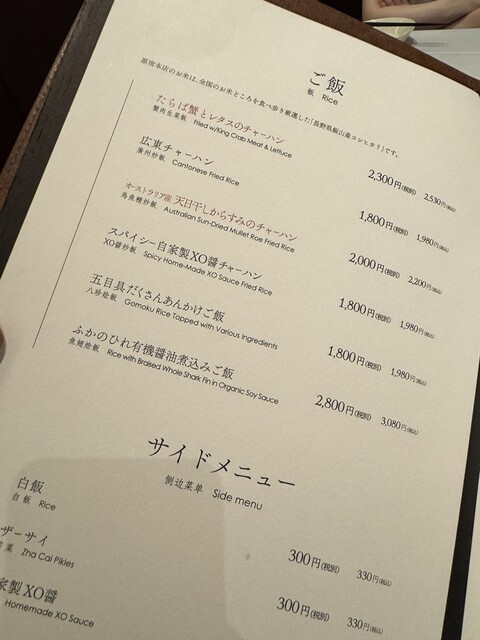 ご飯
飯 Rice
原宿本店のお米は、全国のお米どころを食べ歩き厳選した「長野県飯山産コシヒカリ」です。
たらば蟹とレタスのチャーハン
蟹肉生菜飯 Fried w/King Crab Meat & Lettuce
2,300円(税別) 2,530円(税込)
広東チャーハン
廣州炒飯 Cantonese Fried Rice
1,800円(税別) 1,980円(税込)
オーストラリア産 天日干しからすみのチャーハン
烏魚精炒飯 Australian Sun-Dried Mullet Roe Fried Rice
2,000円(税別) 2,200円(税込)
スパイシー自家製XO醤チャーハン
XO醤炒飯 Spicy Home-Made XO Sauce Fried Rice
1,800円(税別) 1,980円(税込)
五目具だくさんあんかけご飯
八珍烩飯 Gomoku Rice Topped with Various Ingredients
1,800円(税別) 1,980円(税込)
ふかのひれ有機醤油煮込みご飯
魚翅烩飯 Rice with Braised Whole Shark Fin in Organic Soy Sauce
2,800円(税別) 3,080円(税込)
サイドメニュー
側边菜单 Side menu
白飯
白飯 Rice
300円(税別) 330円(税込)
ザーサイ
菜 Zha Cai Pikles
300円(税別) 330円(税込)
家製XO醤
Homemade XO Sauce